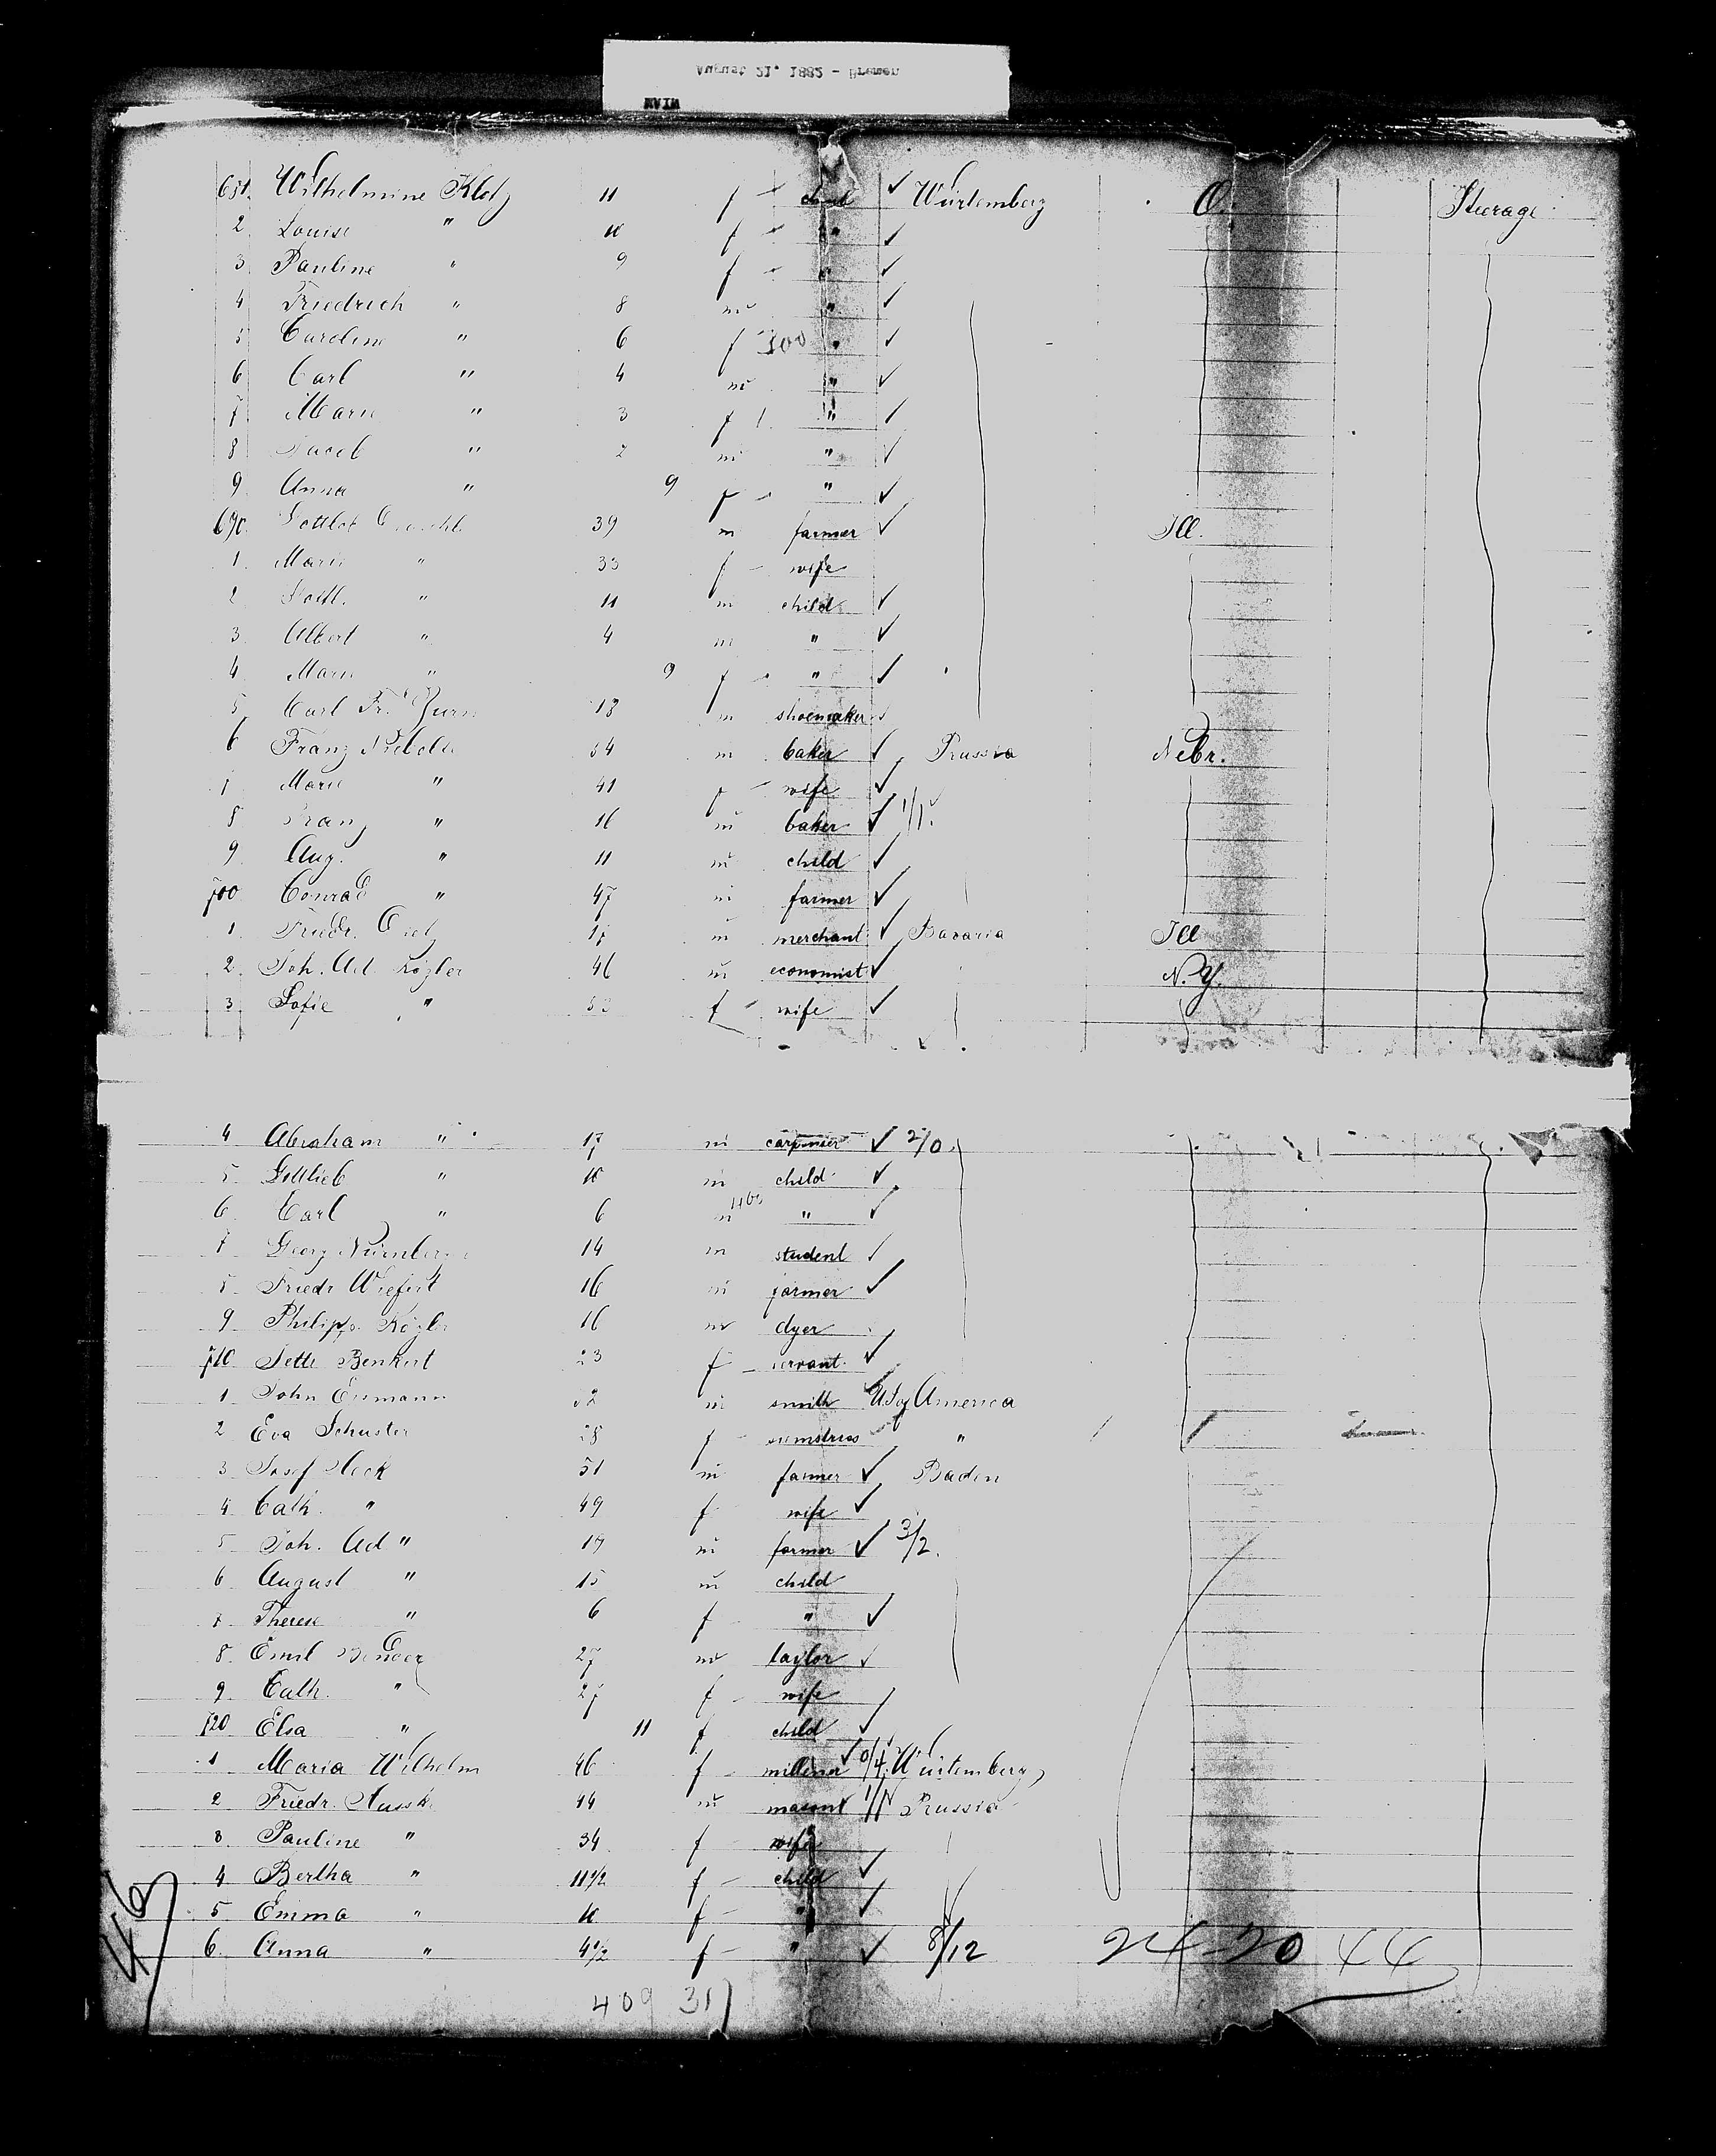 August 21, 1882 - Bremen
MAIN
681. Wilhelmine Klotz 11 f child ✓ Würtemberg O. Steerage
2 Louise " 10 f " ✓
3 Pauline " 9 f " ✓
4 Friedrich " 8 m " ✓
5 Caroline " 6 f 300 " ✓
6 Carl " 4 m " ✓
7 Marie " 3 f " ✓
8 Jacob " 2 m " ✓
9 Anna " 9 f " ✓
690. Gottlob 39 m farmer ✓ Ill.
1 Marie " 33 f wife
2 Gottl. " 11 m child ✓
3 Albert " 4 m " ✓
4 Marie " 9 f " ✓
5 Carl Fr. m shoemaker ✓
6 Franz 54 m baker ✓ Prussia Nebr.
7 Marie " 41 f wife ✓
8 Franz " 16 m baker ✓ 1/1.
9 Aug. " 11 m child ✓
700 Conrad " 47 m farmer ✓
1 Friedr. 17 m merchant ✓ Bavaria Ill
2 Joh. Ad. Közler 46 m economist ✓ N.Y.
3 Sofie " f wife ✓
4 Abraham " 17 m carpenter ✓ 2/0
5 Gottlieb " 10 m child ✓
6 Carl " 6 m " ✓
7 Georg 14 m student ✓
8 Friedr. 16 m farmer ✓
9 Philipp Közler 16 m dyer
710 Jette Benkert 23 f servant ✓
1 John m smith ✓ U.S. of America
2 Eva Schuster 28 f seamstress "
3 Josef Heck 51 m farmer ✓ Baden
4 Cath. " 49 f wife ✓
5 Joh. Ad " 19 m farmer ✓ 3/2.
6 August " 15 m child
7 Therese " 6 f " ✓
8 Emil 27 m taylor ✓
9 Cath. " 27 f wife ✓
720 Elsa " 11 f child ✓
1 Maria Wilhelm 46 f milliner ✓ 0/4. Würtemberg
2 Friedr. 44 m mason 1/1 Prussia
3 Pauline " 34 f wife
4 Bertha " 11 1/2 f child ✓
5 Emma " 10 f " ✓
6. Anna " 4 1/2 f " ✓ 8/12 24-20 44
46
409 317